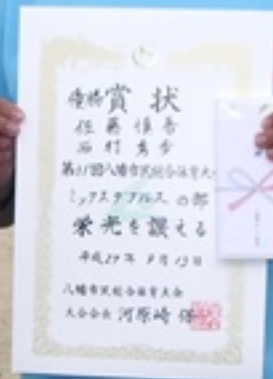 優勝 賞状
佐藤慎吾
西村
八幡市民総合体育大
ミックスダブルスの部
栄光を讃える
平成27年9月13日
八幡市民総合体育大会
大会会長 河原崎